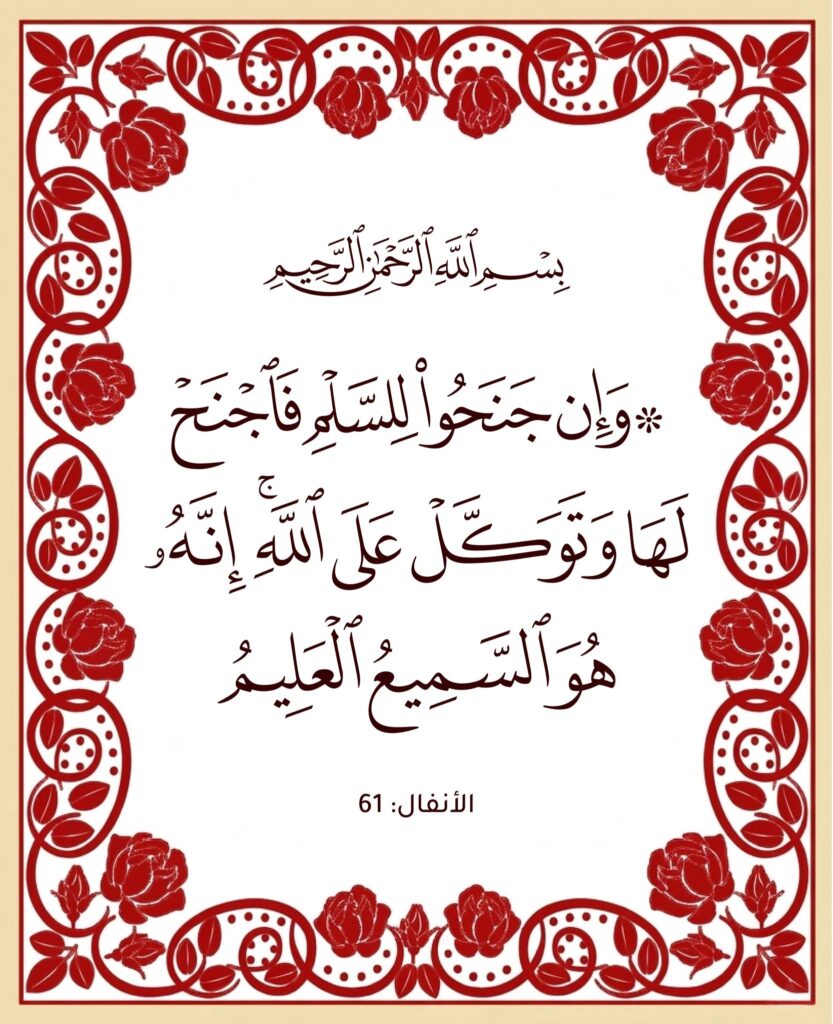 بِسْمِ ٱللَّهِ ٱلرَّحْمَٰنِ ٱلرَّحِيمِ
۞وَإِن جَنَحُوا۟ لِلسَّلْمِ فَٱجْنَحْ
لَهَا وَتَوَكَّلْ عَلَى ٱللَّهِ ۚ إِنَّهُۥ
هُوَ ٱلسَّمِيعُ ٱلْعَلِيمُ
الأنفال: 61